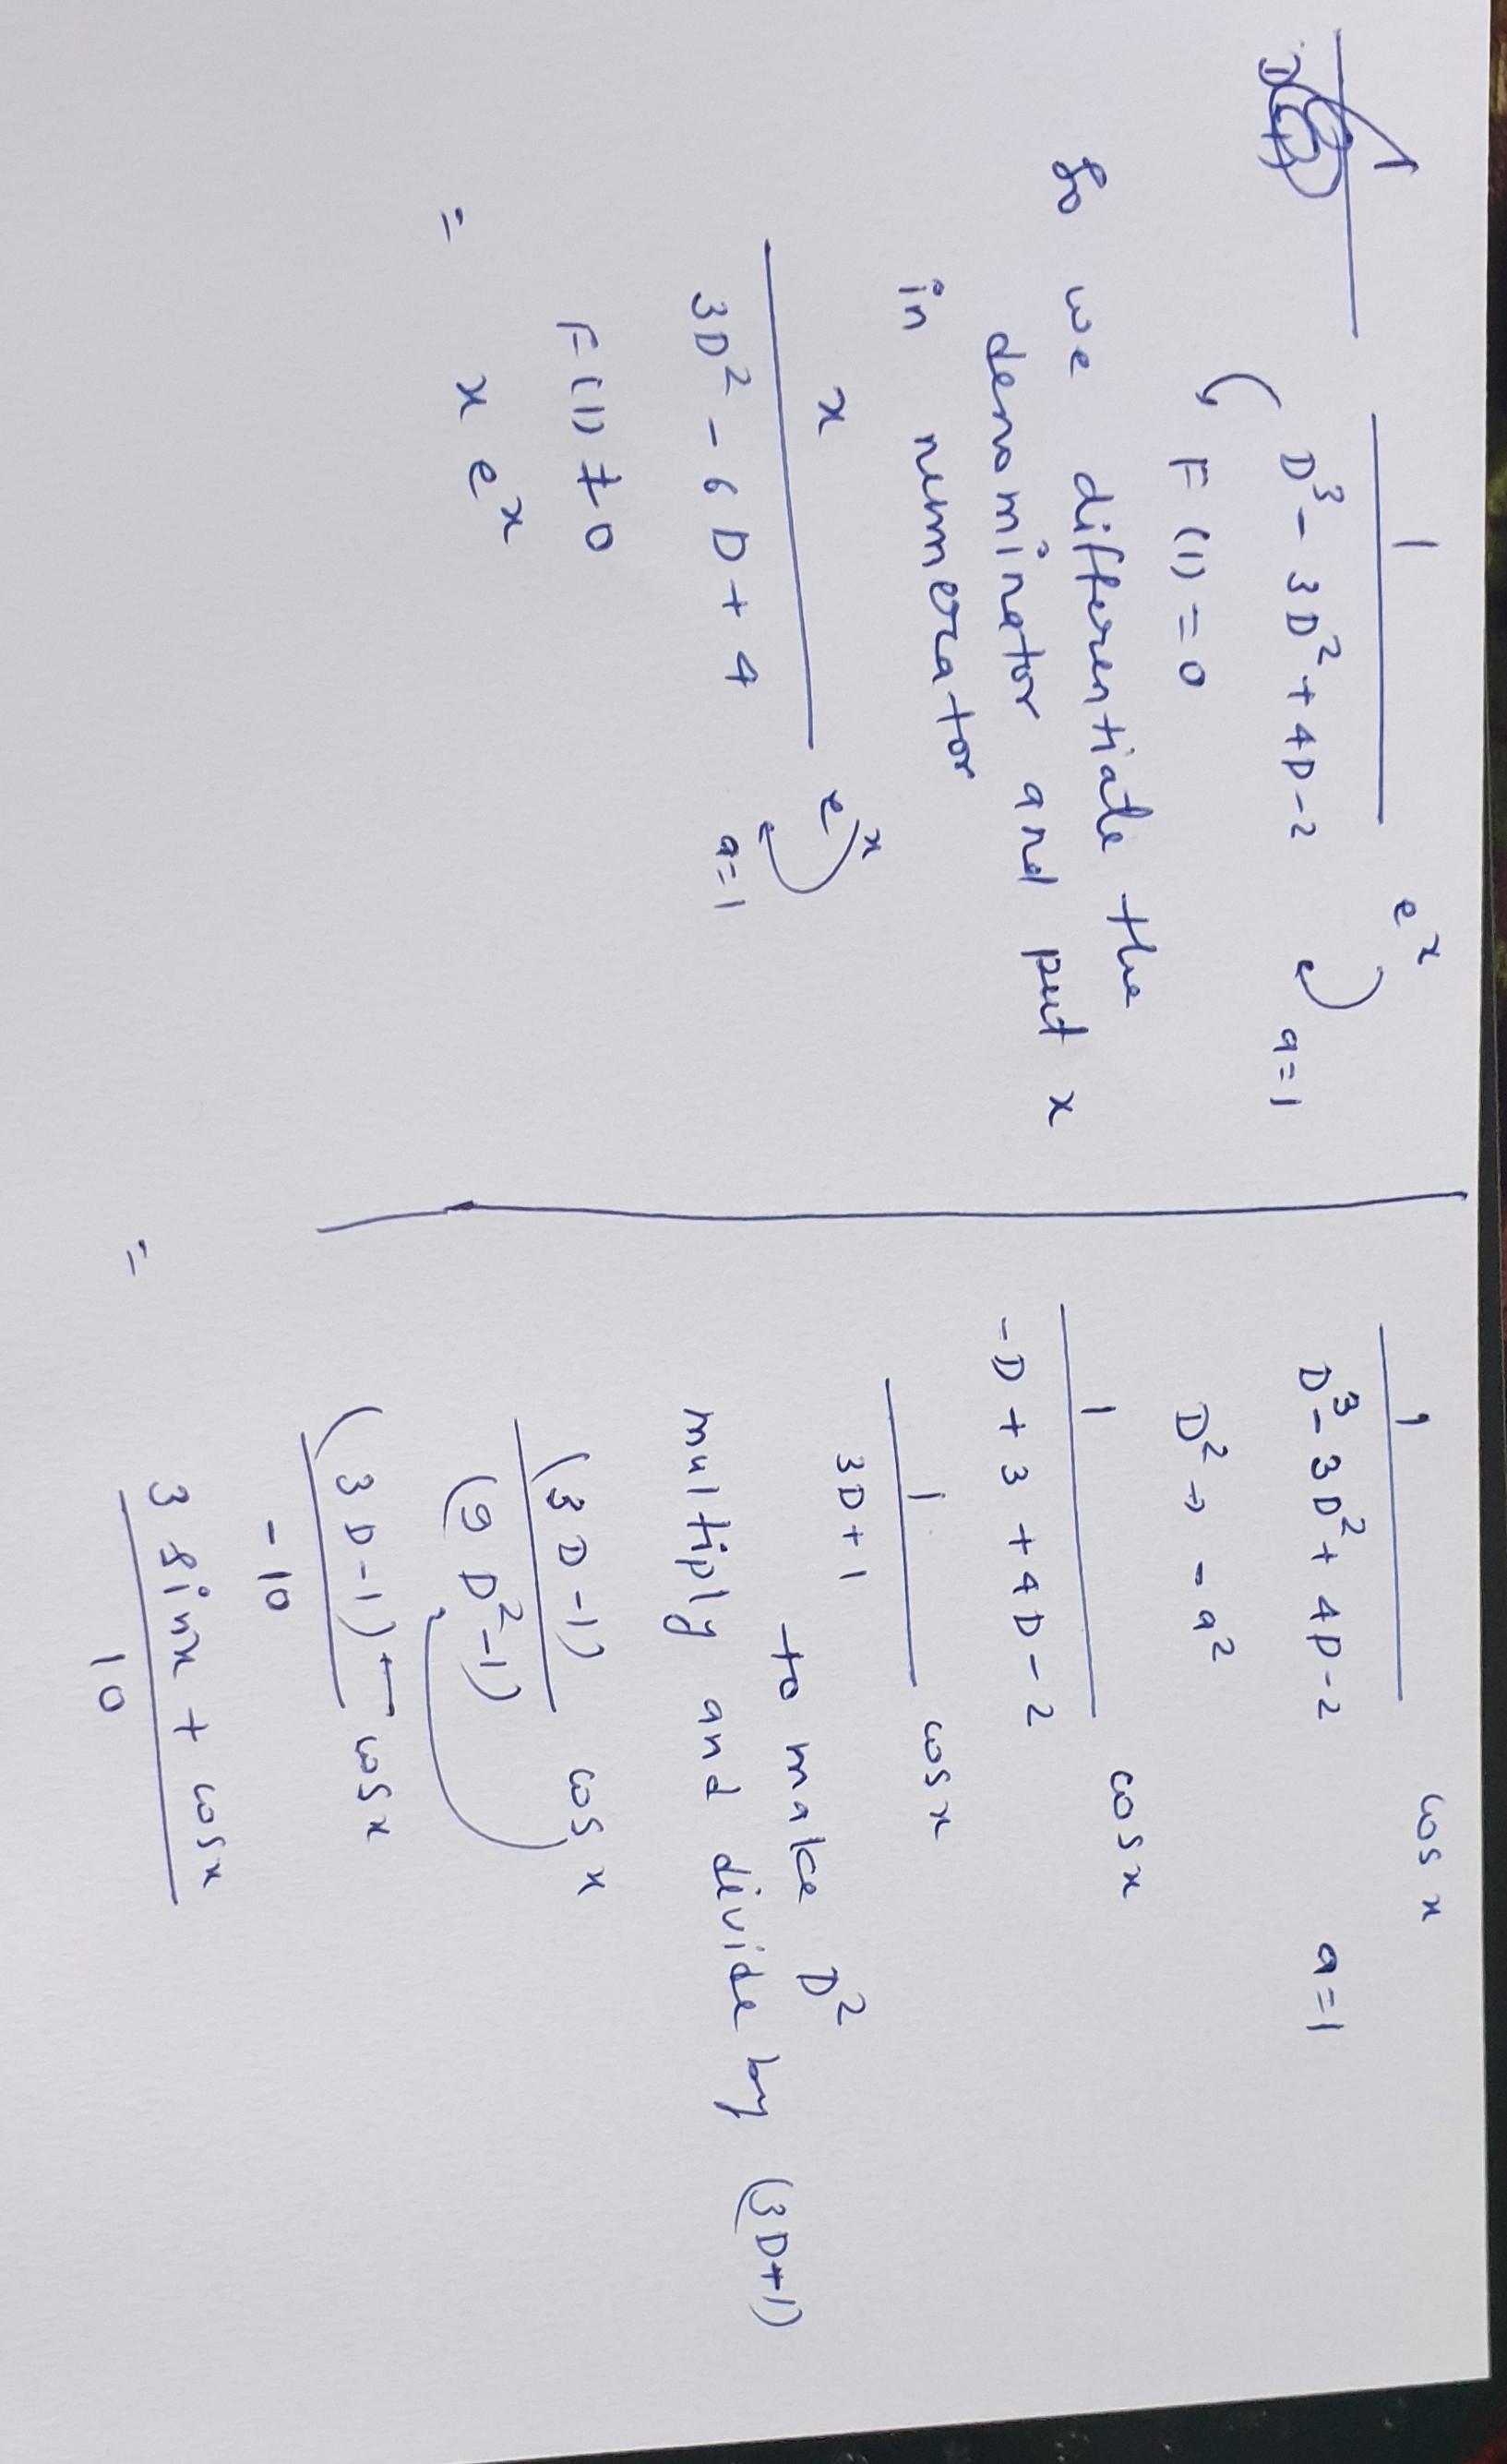 1
D³ - 3D² + 4D - 2 eˣ
a=1
F(1) = 0
So we differentiate the
denominator and put x
in numerator
x
3D² - 6D + 4 eˣ
a=1
F(1) ≠ 0
= x eˣ
1
D³ - 3D² + 4D - 2 cos x
a=1
D² → -a²
1
-D + 3 + 4D - 2 cos x
1
3D+1 cos x
to make D²
multiply and divide by (3D+1)
(3D-1)
(9D²-1) cos x
(3D-1)
-10 cos x
= 3 sinx + cosx
10